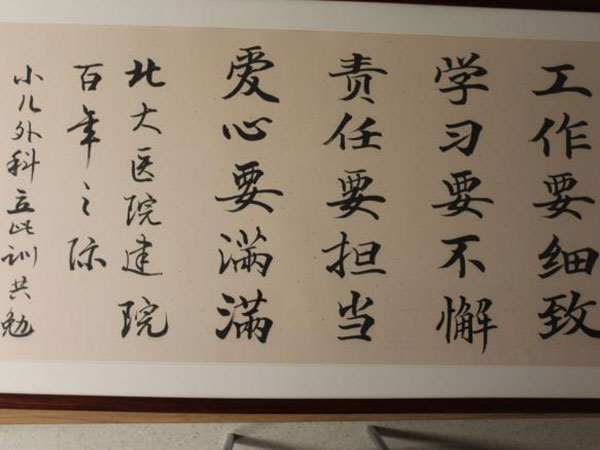 工作要细致
学习要不懈
责任要担当
爱心要满满
北大医院建院
百年之际
小儿外科立此训共勉